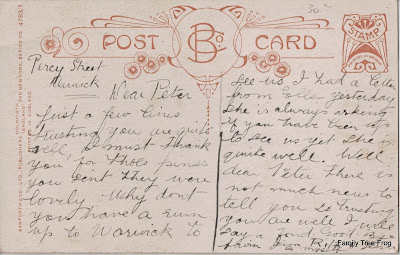 30c
POST CARD
B Co
STAMP
BAMFORTH & CO., LTD., PUBLISHERS, HOLMFIRTH
ENGLAND AND NEW YORK, SERIES NO. 4768/1
Percy Street
Warwick
Dear Peter
Just a few lines
trusting you are quite
well, I must thank
you for those pinks
you sent they were
lovely. Why dont
you have a run
up to Warwick to
see us I had a letter
from yesterday
she is always asking
if you have been up
to see us yet. She is
quite well. Well
dear Peter there is
not much news to
tell you So trusting
you are well I will
say a fond Good Bye
from
Family Tree Frog